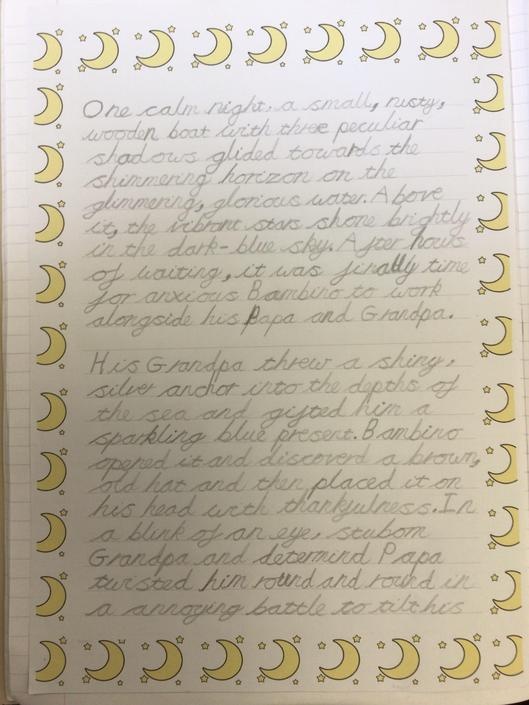 One calm night, a small, rusty,
wooden boat with three peculiar
shadows glided towards the
shimmering horizon on the
glimmering, glorious water. Above
it, the vibrant stars shone brightly
in the dark-blue sky. After hours
of waiting, it was finally time
for anxious Bambino to work
alongside his Papa and Grandpa.
His Grandpa threw a shiny,
silver anchor into the depths of
the sea and gifted him a
sparkling blue present. Bambino
opened it and discoverd a brown,
old hat and then placed it on
his head with thankfulness. In
a blink of an eye, stuborn
Grandpa and determind Papa
twisted him round and round in
a annoying battle to tilt his